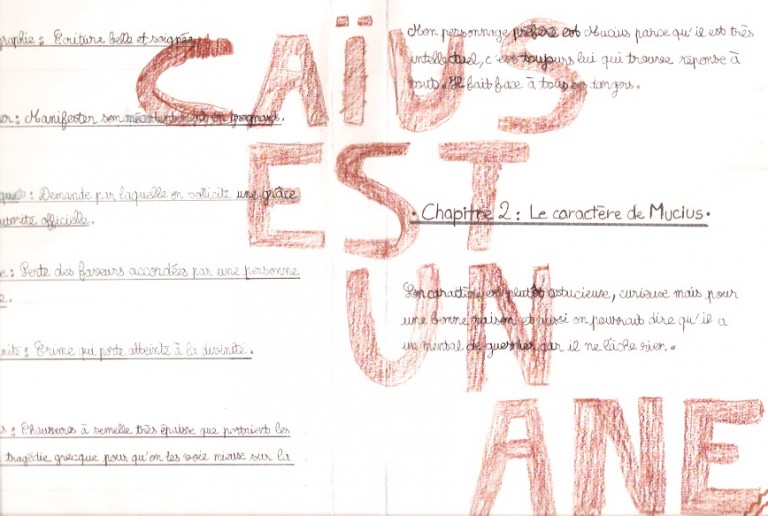 CAÏUS
EST
UN
ANE
graphie : Ecriture belle et soignée.
er : Manifester son mécontentement en grognant.
quete : Demande par laquelle on solicite une grâce
autorité officielle.
e : Perte des faveurs accordées par une personne
e.
: Crime qui porte atteinte à la divinité.
s : Chaussures à semelle très épaisse que portaient les
tragédie grecque pour qu'on les voie mieux sur la
Mon personnage préféré est Mucius parce qu'il est très
intellectuel, c'est toujours lui qui trouve réponse à
tout. Il fait face à tous
dangers.
• Chapitre 2 : Le caractère de Mucius •
Son caractère est plutôt astucieuse, curieuse mais pour
une bonne raison et aussi on pourrait dire qu'il a
un mental de guerrier car il ne lâche rien.